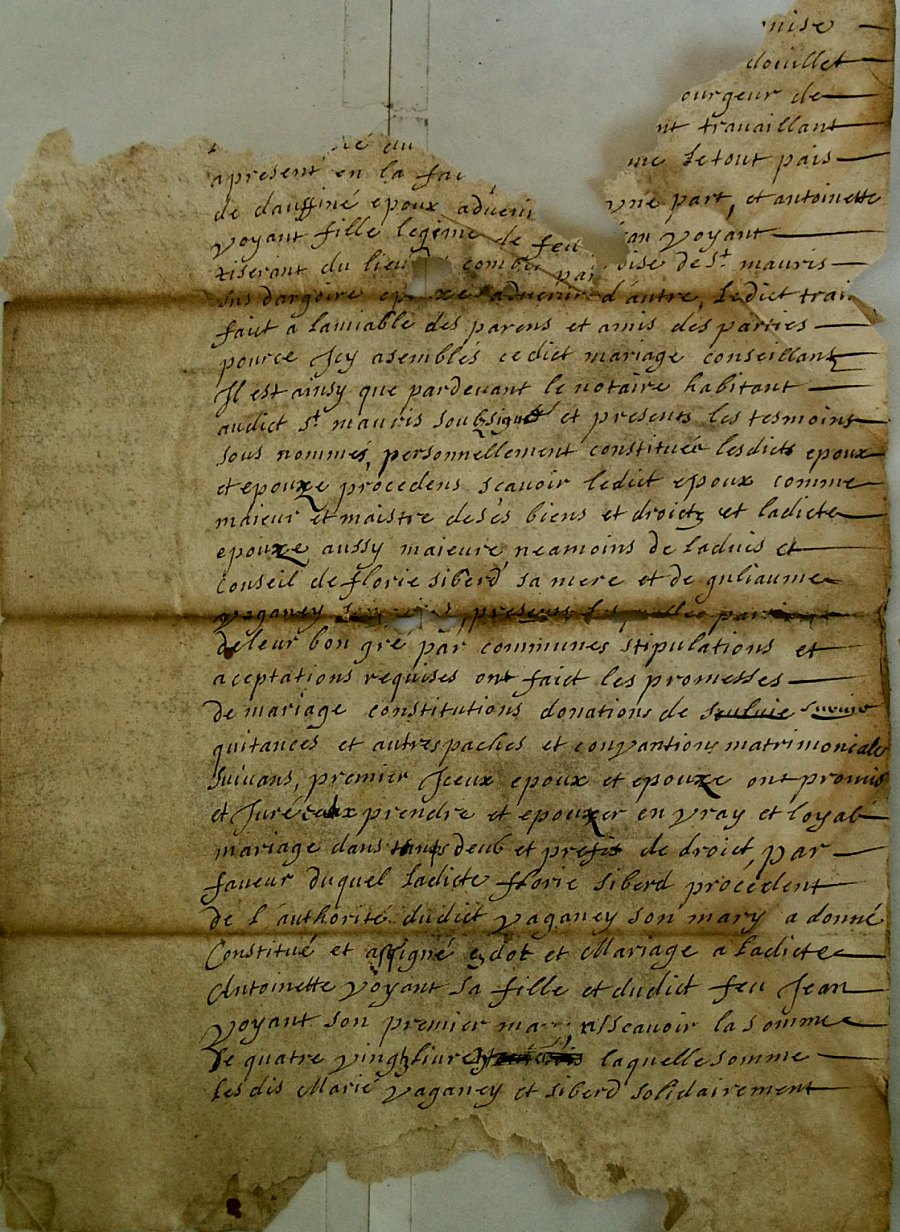 mise
douillet
ourgeur de
nt travaillant
du me le tout pais
apresent en la fai
de dauffiné epoux adveni vne part, et antoinette
voyant fille legieme de feu ean voyant
tiserant du lieu combe par oise de St mauris
sus dargoire ep xe advenir d'autre, Ledict trai
faict a lamiable des parens et amis des parties
pource Jcy asemblés cedict mariage conseillans
Il est ainsy que pardevant le notaire habitant
audict St mauris soubsigné et presents les tesmoins
sous nommés, personnellement constitués lesdicts epoux
et epouxe procedens scavoir ledict epoux comme
maieur et maistre de ses biens et droictz et ladicte
epouxe aussy maieure neamoins de laduis et
conseil de florie siberd sa mere et de guliaume
vaganey presens
de leur bon gré par communes stipulations et
aceptations requises ont faict les promesses
de mariage constitutions donations de survie
quitances et autres paches et convantions matrimoniales
suivans, premier Jceux epoux et epouxe ont promis
et Juré prendre et epouxer en vray et loyal
mariage dans temps deub et prefis de droict, par
faveur duquel ladicte florie siberd procedent
de l'authorité dudict vaganey son mary a donné
Constitué et assigné en dot et Mariage a ladicte
Antoinette voyant sa fille et dudict feu Jean
voyant son premier ma assçavoir la somme
de quatre vingtz livres laquelle somme
les dis Marié vaganey et siberd solidairement